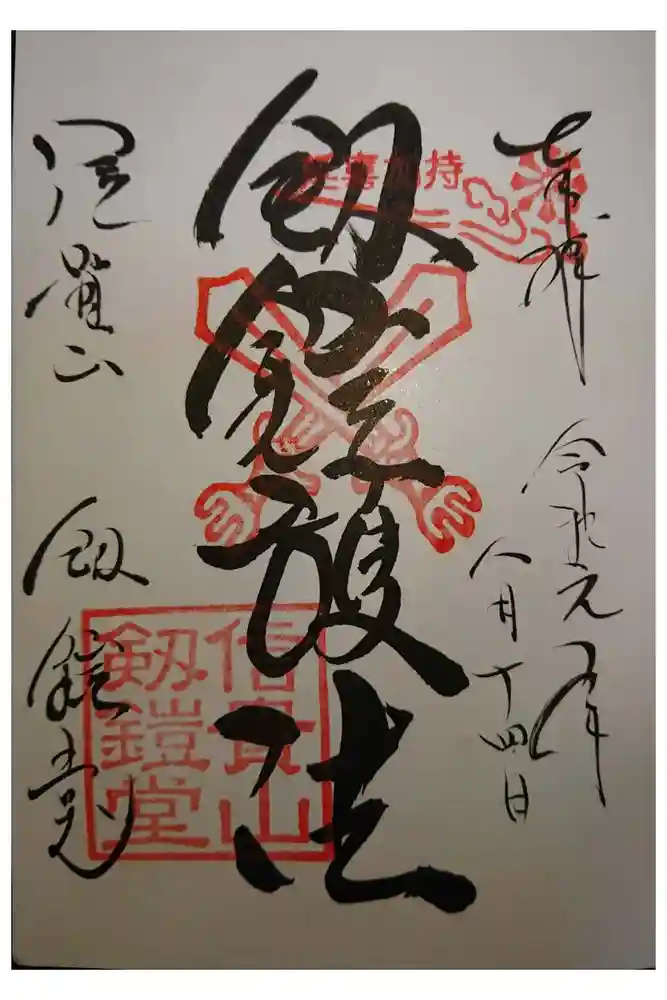 奉拝
令和元年
八月十四日
延喜加持
剱鎧護法
信貴山
剱鎧堂
信貴山
剱鎧堂